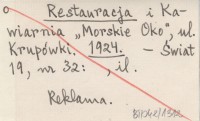 o Restauracja i Ka-
wiarnia „Morskie Oko", ul.
Krupówki. 1924. - Świat
19, nr 32: , il.
Reklama.